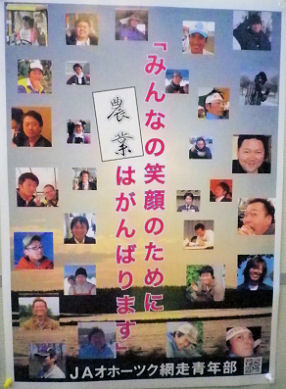 「みんなの笑顔のために
農業
はがんばります」
JAオホーツク網走青年部